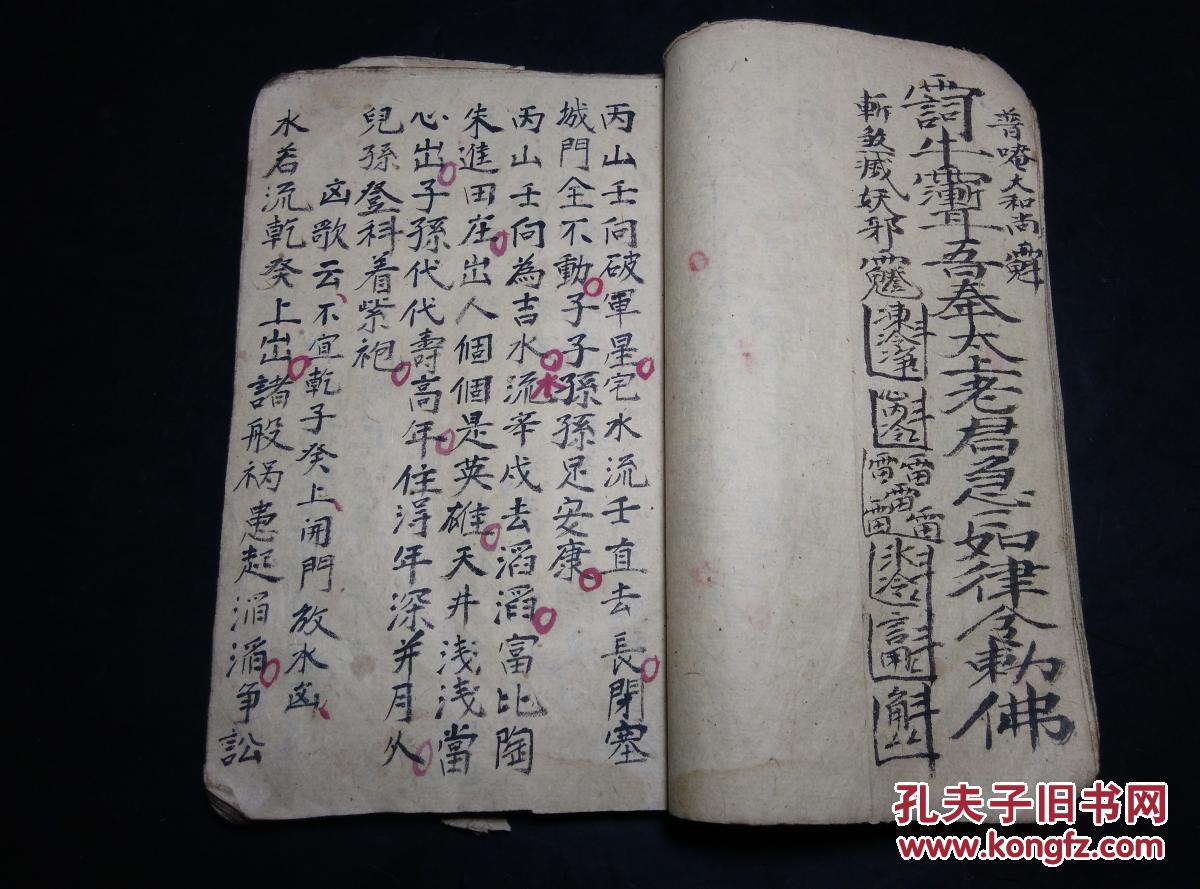 普唵大和尚
吾奉太上老君急急如律令勅佛
斬煞滅妖邪
凍冷净
雷雷雷雷雷
丙山壬向破軍星宅水流壬直去長閉塞
城門全不動子子孫孫足安康
丙山壬向為吉水流辛戌去滔滔富比陶
朱進田庄出人個個是英雄天井浅浅當
心出子孫代代壽高年住淂年深并月久
兒孫登科着紫袍
凶歌云不宜乾子癸上開門放水凶
水若流乾癸上出諸般祸患起滔滔争訟
孔夫子旧书网
www.kongfz.com